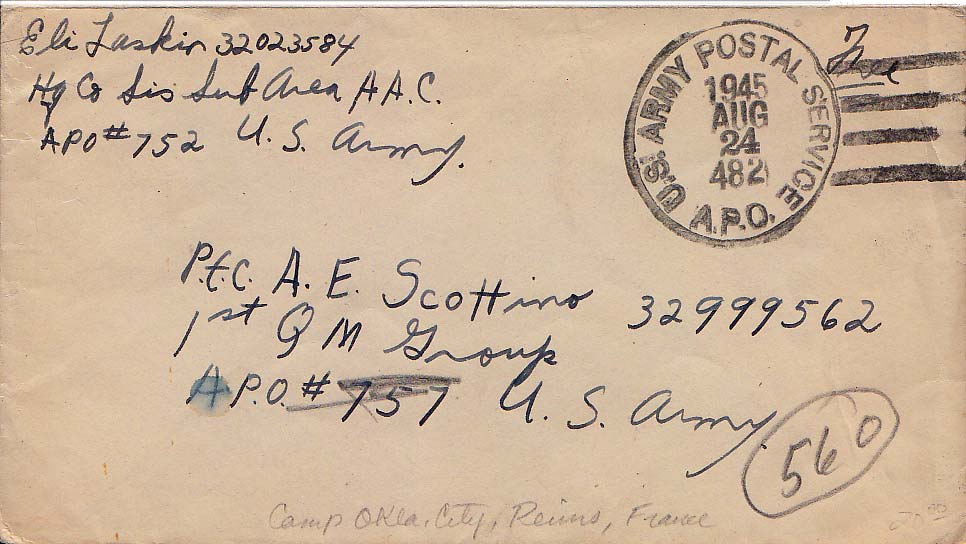 Eli Laskin 32023584
Hq Co Sub Area A.A.C.
APO # 752 U. S. Army.
U.S. ARMY POSTAL SERVICE
1945
AUG
24
482
A.P.O.
Free
P.f.C. A. E. Scottino 32999562
1st Q M Group
A P.O. # 757 U. S. Army
560
Camp Okla. City, Reims, France